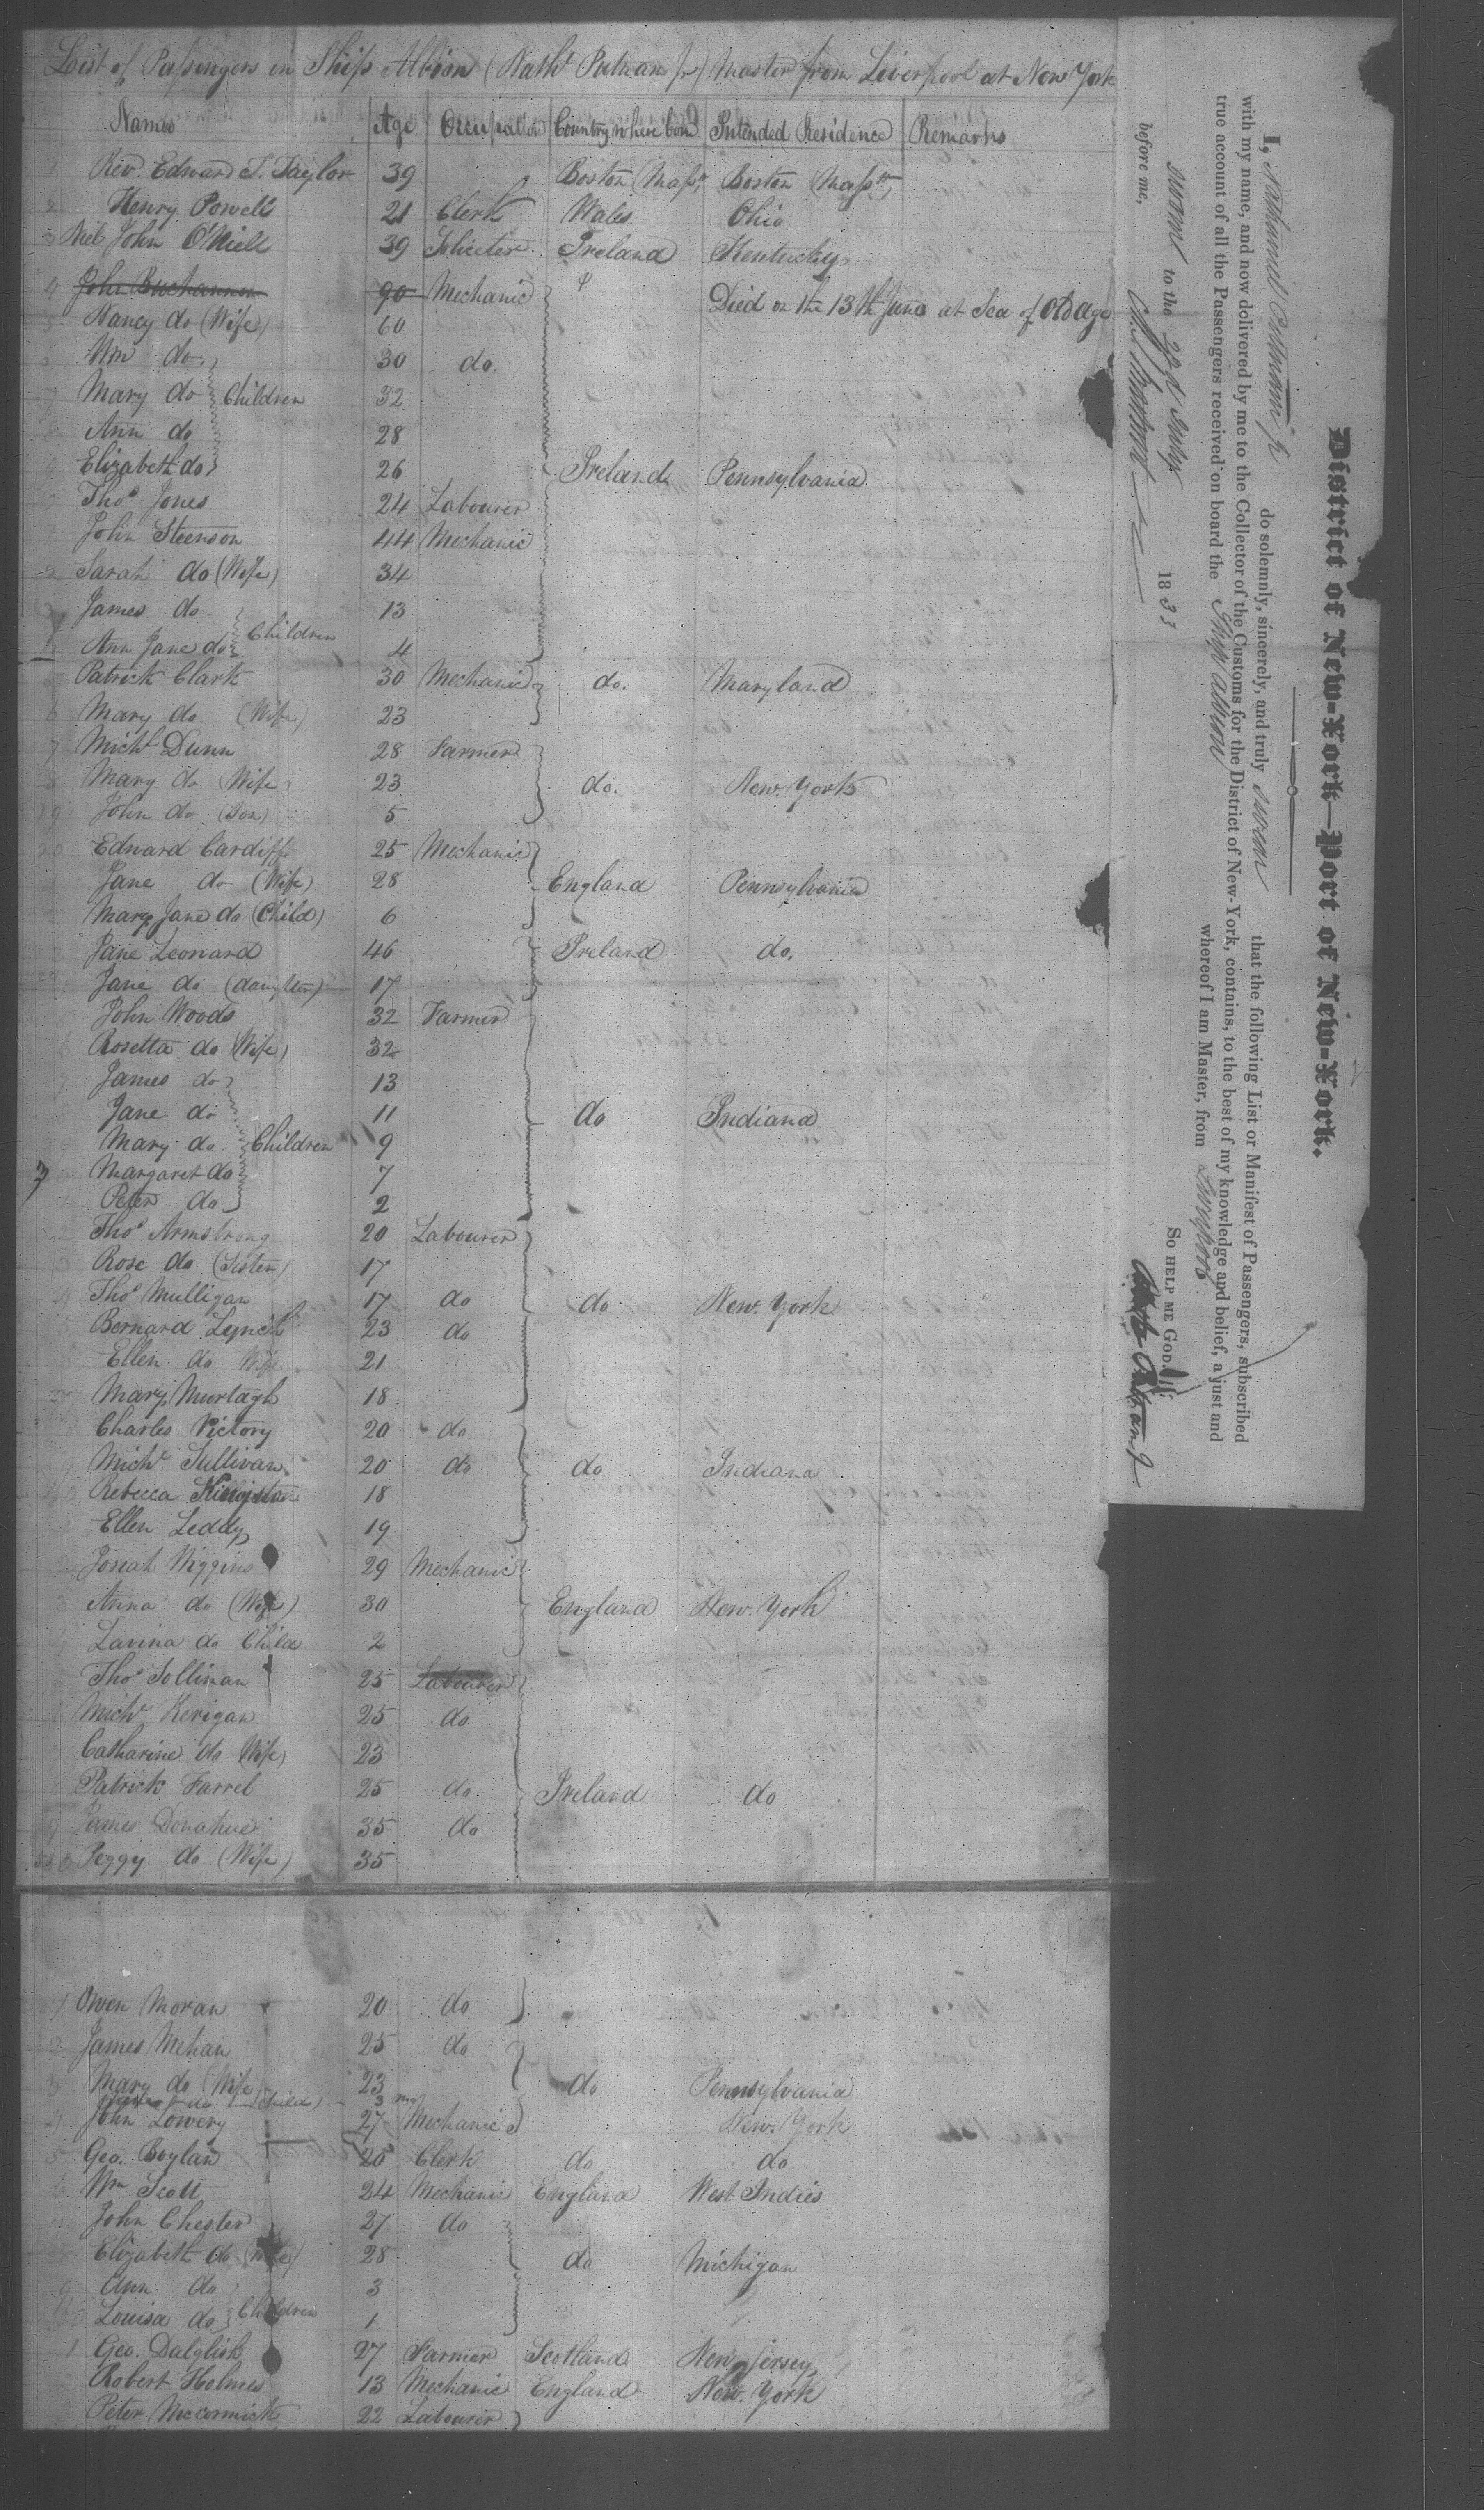 List of Passengers in Ship Albion (Nathl Putnam jr) Master from Liverpool at New York
Names Age Occupation Country where born Intended Residence Remarks
1 Rev. Edward T. Taylor 39 Boston (Mass Boston (Masstts
2 Henry Powell 21 Clerk Wales Ohio
3 John O'Niell 39 Solicitor Ireland Kentucky
4 John Buchannon 90 Mechanic Died on the 13th June at Sea of Old Age
5 Nancy do (Wife) 60
6 Wm do 30 do.
7 Mary do Children 32
8 Ann do 28
9 Elizabeth do 26 Ireland Pennsylvania
Thos Jones 24 Labourer
John Steenson 44 Mechanic
2 Sarah do (Wife) 34
3 James do 13
Children
4 Ann Jane do 4
Patrick Clark 30 Mechanic do. Maryland
6 Mary do (Wife) 23
7 Michl Dunn 28 Farmer
8 Mary do (Wife) 23 do. New York
19 John do (Son) 5
20 Edward Cardiff 25 Mechanic
Jane do (Wife) 28 England Pennsylvania
2 Mary Jane do (Child) 6
3 Jane Leonard 46 Ireland do.
Jane do (daughter) 17
John Woods 32 Farmer
6 Rosetta do (Wife) 32
7 James do 13
Jane do 11 do Indiana
9 Mary do Children 9
Margaret do 7
Peter do 2
2 Thos Armstrong 20 Labourer
3 Rose do (Sister) 17
4 Thos Mulligan 17 do do New York
Bernard Lynch 23 do
Ellen do Wife 21
37 Mary Murtagh 18
Charles Victory 20 do
9 Michl Sullivan 20 do do Indiana
40 Rebecca Kingston 18
Ellen Leddy 19
2 Josiah Wiggins 29 Mechanic
3 Anna do (Wife) 30 England New York
Lavina do Child 2
Thos Sollivan 25 Labourer
Michl Kerigan 25 do
Catharine do Wife) 23
Patrick Farrel 25 do Ireland do
9 James Donahue 35 do
50 Peggy do (Wife) 35
1 Owen Moran 20 do
2 James Mehan 25 do
3 Mary do (Wife 23 do Pennsylvania
do (Child) 3 mo
4 John Lowery 27 Mechanic New York
5 Geo. Boylan 20 Clerk do do
6 Wm Scott 24 Mechanic England West Indies
John Chester 27 do
8 Elizabeth do (Wife) 28 do Michigan
9 Ann do 3
Children
60 Louisa do 1
1 Geo. Dalglish 27 Farmer Scotland New Jersey
Robert Holmes 13 Mechanic England New York
Peter McCormick 22 Labourer
District of New-York—Port of New-York.
I, Nathaniel Putnam jr do solemnly, sincerely, and truly swear that the following List or Manifest of Passengers, subscribed
with my name, and now delivered by me to the Collector of the Customs for the District of New-York, contains, to the best of my knowledge and belief, a just and
true account of all the Passengers received on board the Ship Albion whereof I am Master, from Liverpool.
sworn to the 22d July 1833 So help me God.
before me,
Nathl Putnam jr